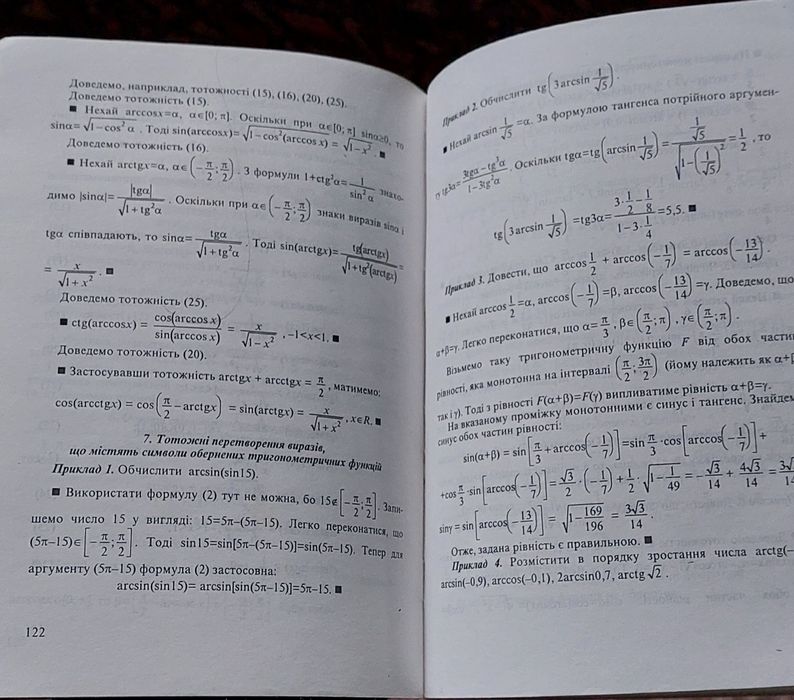 Доведемо, наприклад, тотожності (15), (16), (20), (25).
Доведемо тотожність (15).
■ Нехай arccosx=α, α∈[0; π]. Оскільки при α∈[0; π] sinα≥0, то
sinα=√(1−cos²α). Тоді sin(arccosx)=√(1−cos²(arccos x)) = √(1−x²). ■
Доведемо тотожність (16).
■ Нехай arctgx=α, α∈(−π/2; π/2). З формули 1+ctg²α=1/sin²α знахо-
димо |sinα|=|tgα|/√(1+tg²α). Оскільки при α∈(−π/2; π/2) знаки виразів sinα і
tgα співпадають, то sinα=tgα/√(1+tg²α). Тоді sin(arctgx)=tg(arctgx)/√(1+tg²(arctgx))=
= x/√(1+x²). ■
Доведемо тотожність (25).
■ ctg(arccosx) = cos(arccos x)/sin(arccos x) = x/√(1−x²), −1<x<1. ■
Доведемо тотожність (20).
■ Застосувавши тотожність arctgx + arcctgx = π/2, матимемо:
cos(arcctgx) = cos(π/2−arctgx) = sin(arctgx) = x/√(1+x²), x∈R. ■
7. Тотожні перетворення виразів,
що містять символи обернених тригонометричних функцій
Приклад 1. Обчислити arcsin(sin15).
■ Використати формулу (2) тут не можна, бо 15∉[−π/2; π/2]. Запи-
шемо число 15 у вигляді: 15=5π−(5π−15). Легко переконатися, що
(5π−15)∈[−π/2; π/2]. Тоді sin15=sin[5π−(5π−15)]=sin(5π−15). Тепер для
аргументу (5π−15) формула (2) застосовна:
arcsin(sin15)= arcsin[sin(5π−15)]=5π−15. ■
122
Приклад 2. Обчислити tg(3arcsin 1/√5).
■ Нехай arcsin 1/√5 =α. За формулою тангенса потрійного аргумен-
ту tg3α=(3tgα−tg³α)/(1−3tg²α). Оскільки tgα=tg(arcsin 1/√5) = (1/√5)/√(1−(1/√5)²) = 1/2, то
tg(3arcsin 1/√5) =tg3α= (3·1/2−1/8)/(1−3·1/4) =5,5. ■
Приклад 3. Довести, що arccos 1/2 + arccos(−1/7) = arccos(−13/14).
■ Нехай arccos 1/2 =α, arccos(−1/7) =β, arccos(−13/14) =γ. Доведемо, що
α+β=γ. Легко переконатися, що α=π/3, β∈(π/2; π), γ∈(π/2; π).
Візьмемо таку тригонометричну функцію F від обох частин
рівності, яка монотонна на інтервалі (π/2; 3π/2) (йому належить як α+β
так і γ). Тоді з рівності F(α+β)=F(γ) випливатиме рівність α+β=γ.
На вказаному проміжку монотонними є синус і тангенс. Знайдем
синус обох частин рівності:
sin(α+β) = sin[π/3 + arccos(−1/7)] =sin π/3 ·cos[arccos(−1/7)] +
+cos π/3 ·sin[arccos(−1/7)] = √3/2 · (−1/7) + 1/2 · √(1−1/49) = −√3/14 + 4√3/14 = 3√3/14
sinγ = sin[arccos(−13/14)] = √(1−169/196) = 3√3/14.
Отже, задана рівність є правильною. ■
Приклад 4. Розмістити в порядку зростання числа arctg(−
arcsin(−0,9), arccos(−0,1), 2arcsin0,7, arctg √2.